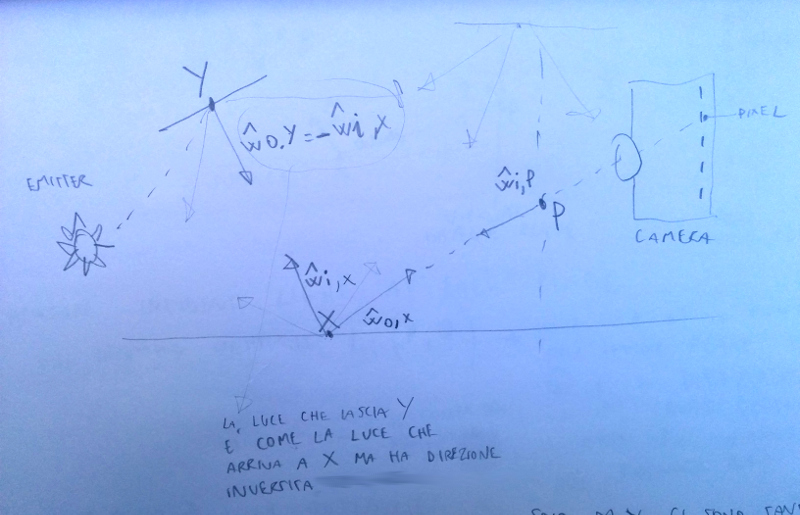 Y
ŵo,Y = -ŵi,X
PIXEL
EMITTER
ŵi,P
P
CAMERA
ŵi,x
X
ŵo,x
LA LUCE CHE LASCIA Y
È COME LA LUCE CHE
ARRIVA A X MA HA DIREZIONE
INVERTITA
CI SONO